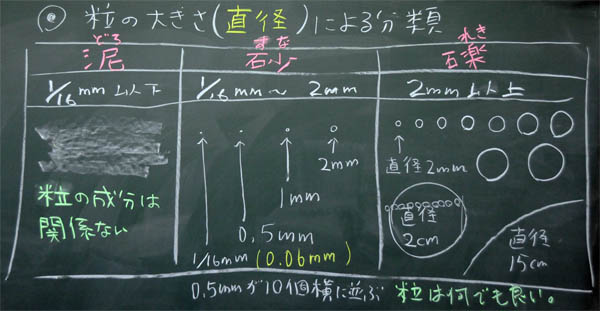 ◎ 粒の大きさ(直径)による分類
どろ すな れき
泥 砂 礫
1/16mm以下 1/16mm〜2mm 2mm以上
直径2mm
2mm
1mm
0.5mm
1/16mm(0.06mm)
粒の成分は
関係ない
直径
2cm
直径
15cm
0.5mmが10個横に並ぶ 粒は何でも良い。